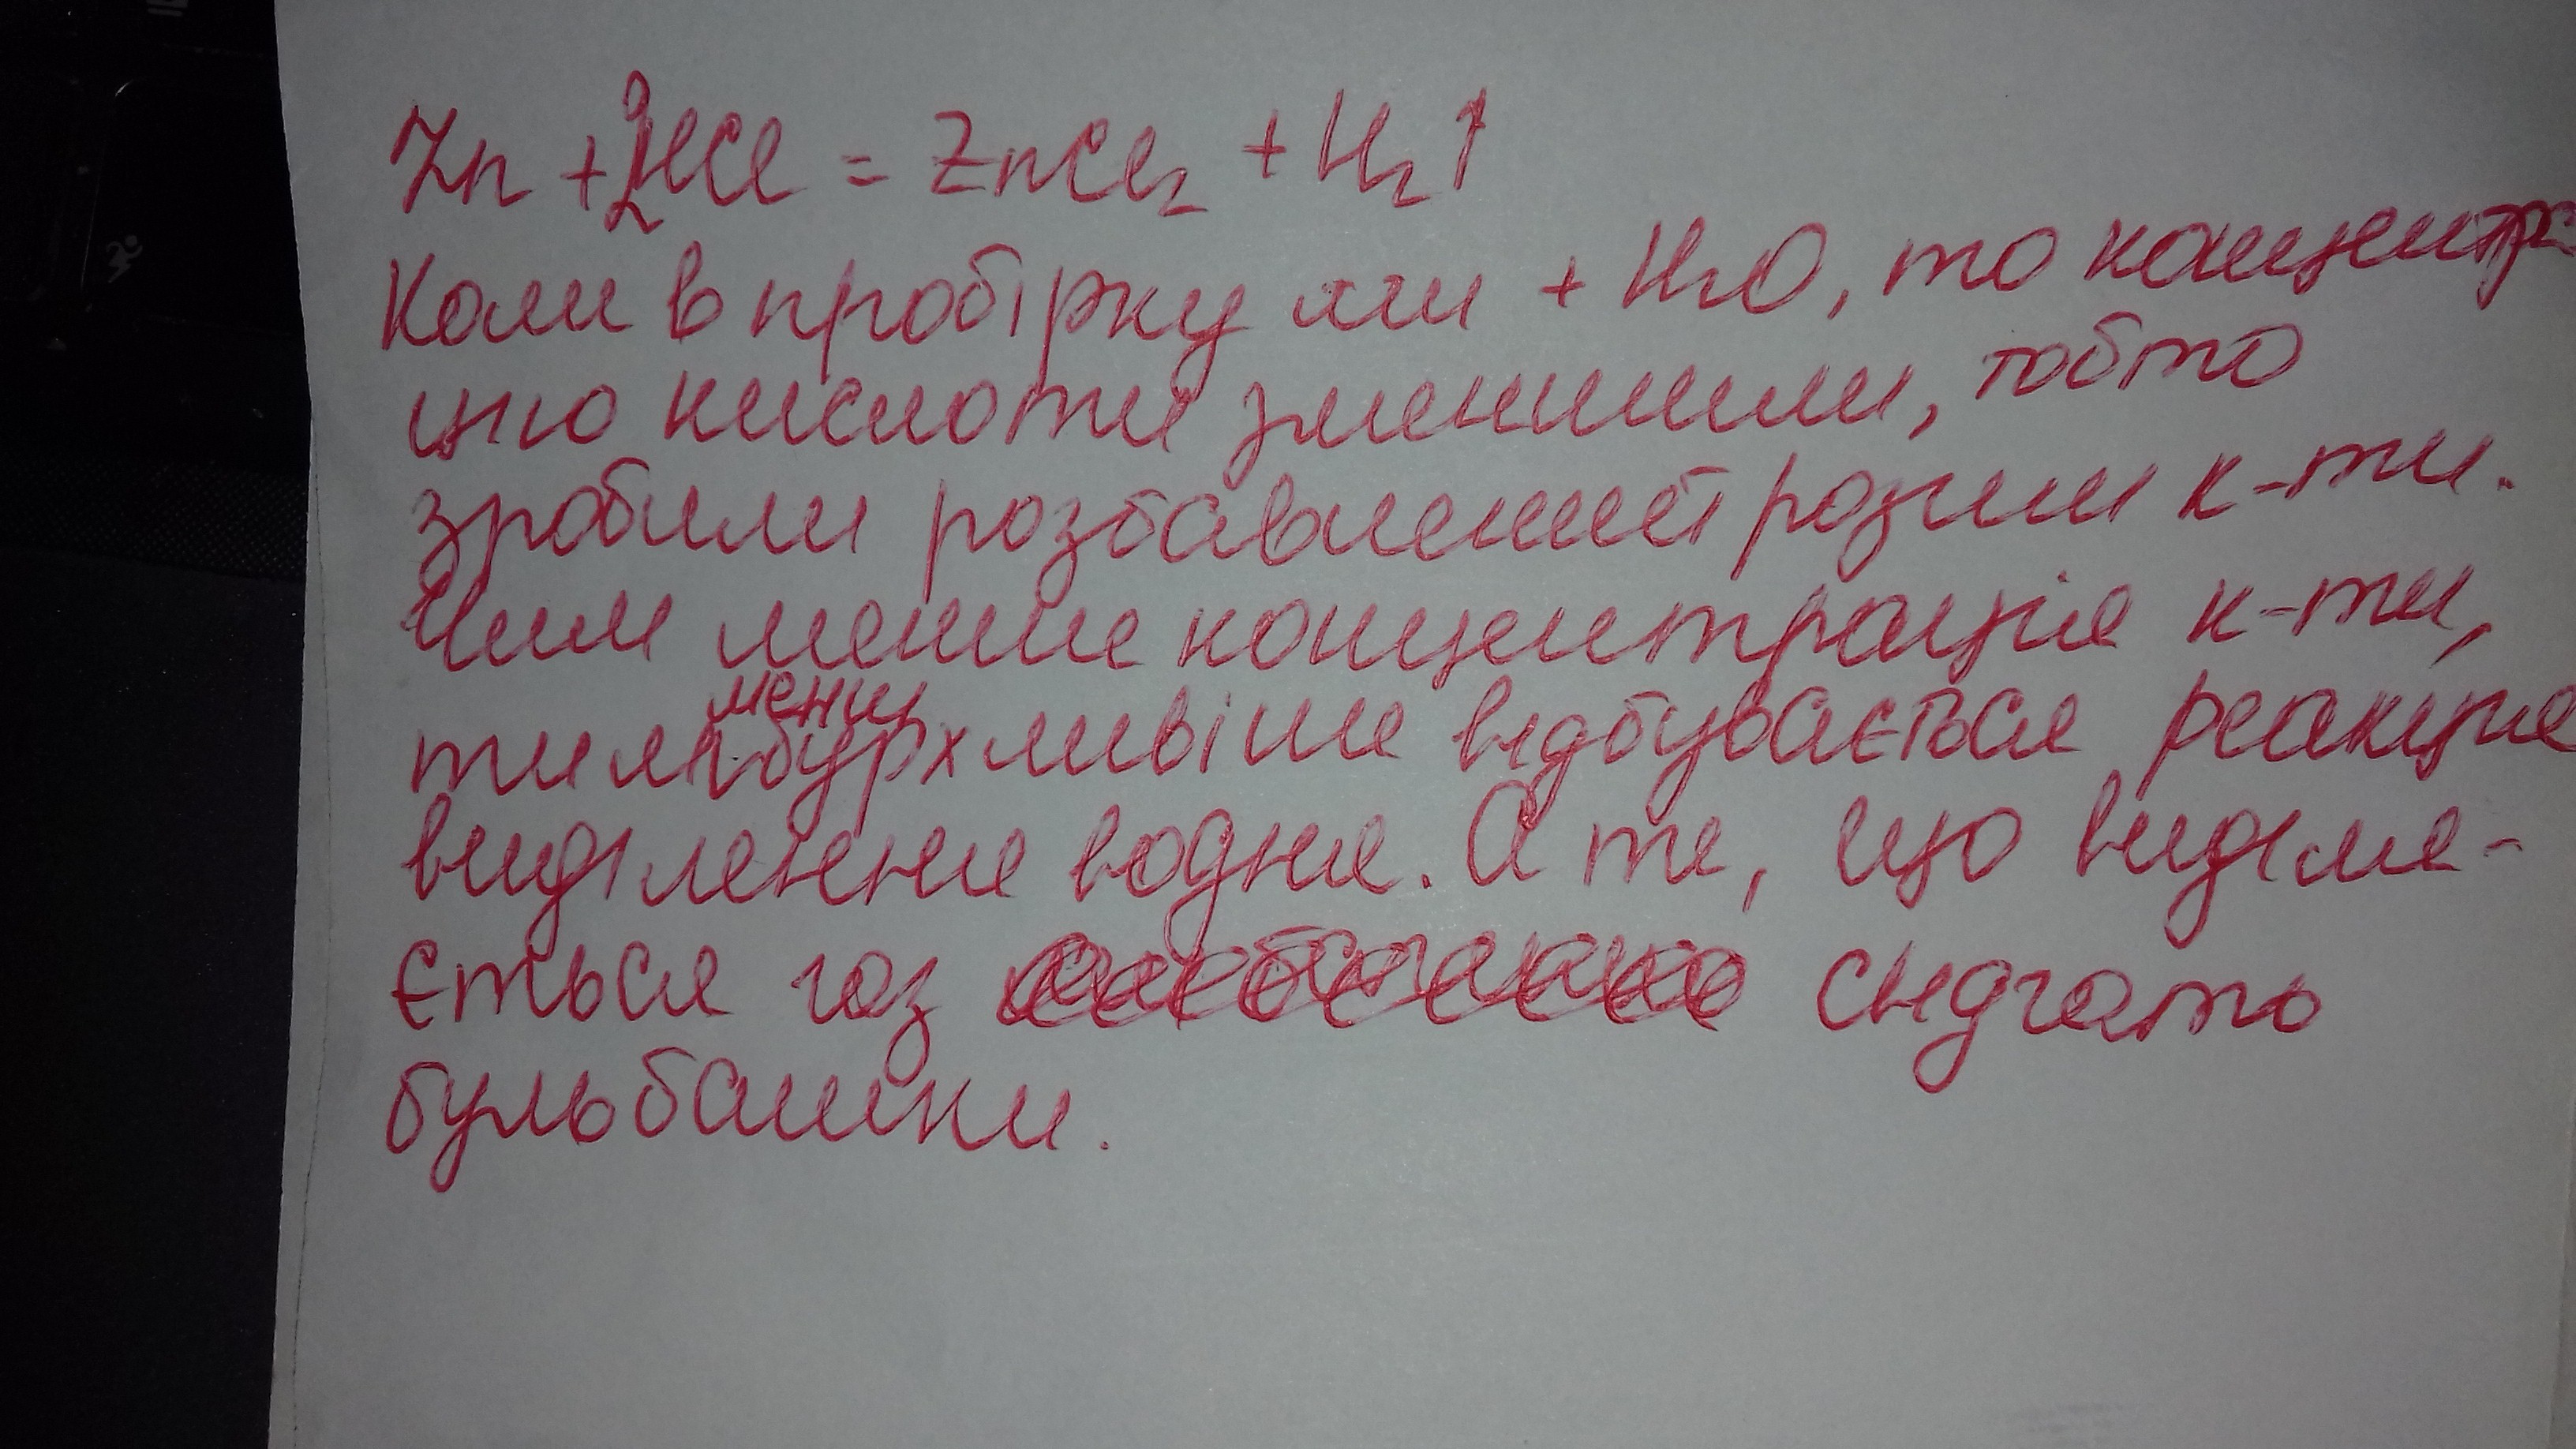 Zn + 2HCl = ZnCl₂ + H₂↑
Коли в пробірку ми + H₂O, то концентра
цію кислоти зменшили, тобто
зробили розбавлений розчин к-ти.
Чим менше концентрація к-ти,
тим менш бурхливіше відбувається реакція
виділення водня. А те, що виділя-
ється газ свідчать
бульбашки.